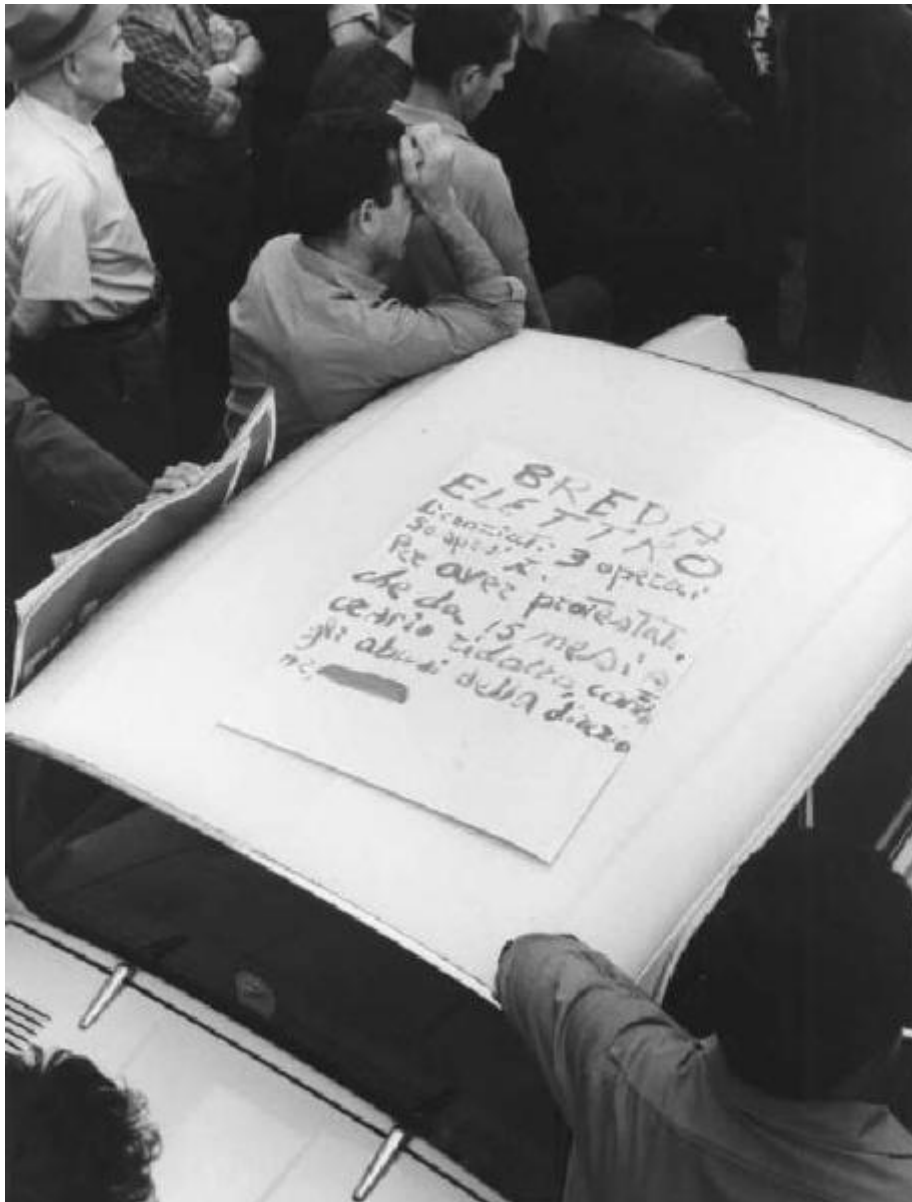 BREDA
ELETTRO
Licenziati 3 operai
Sospesi 2.
Per aver protestato,
che da 15 mesi a
orario ridotto, contro
gli abusi della direzio
ne.